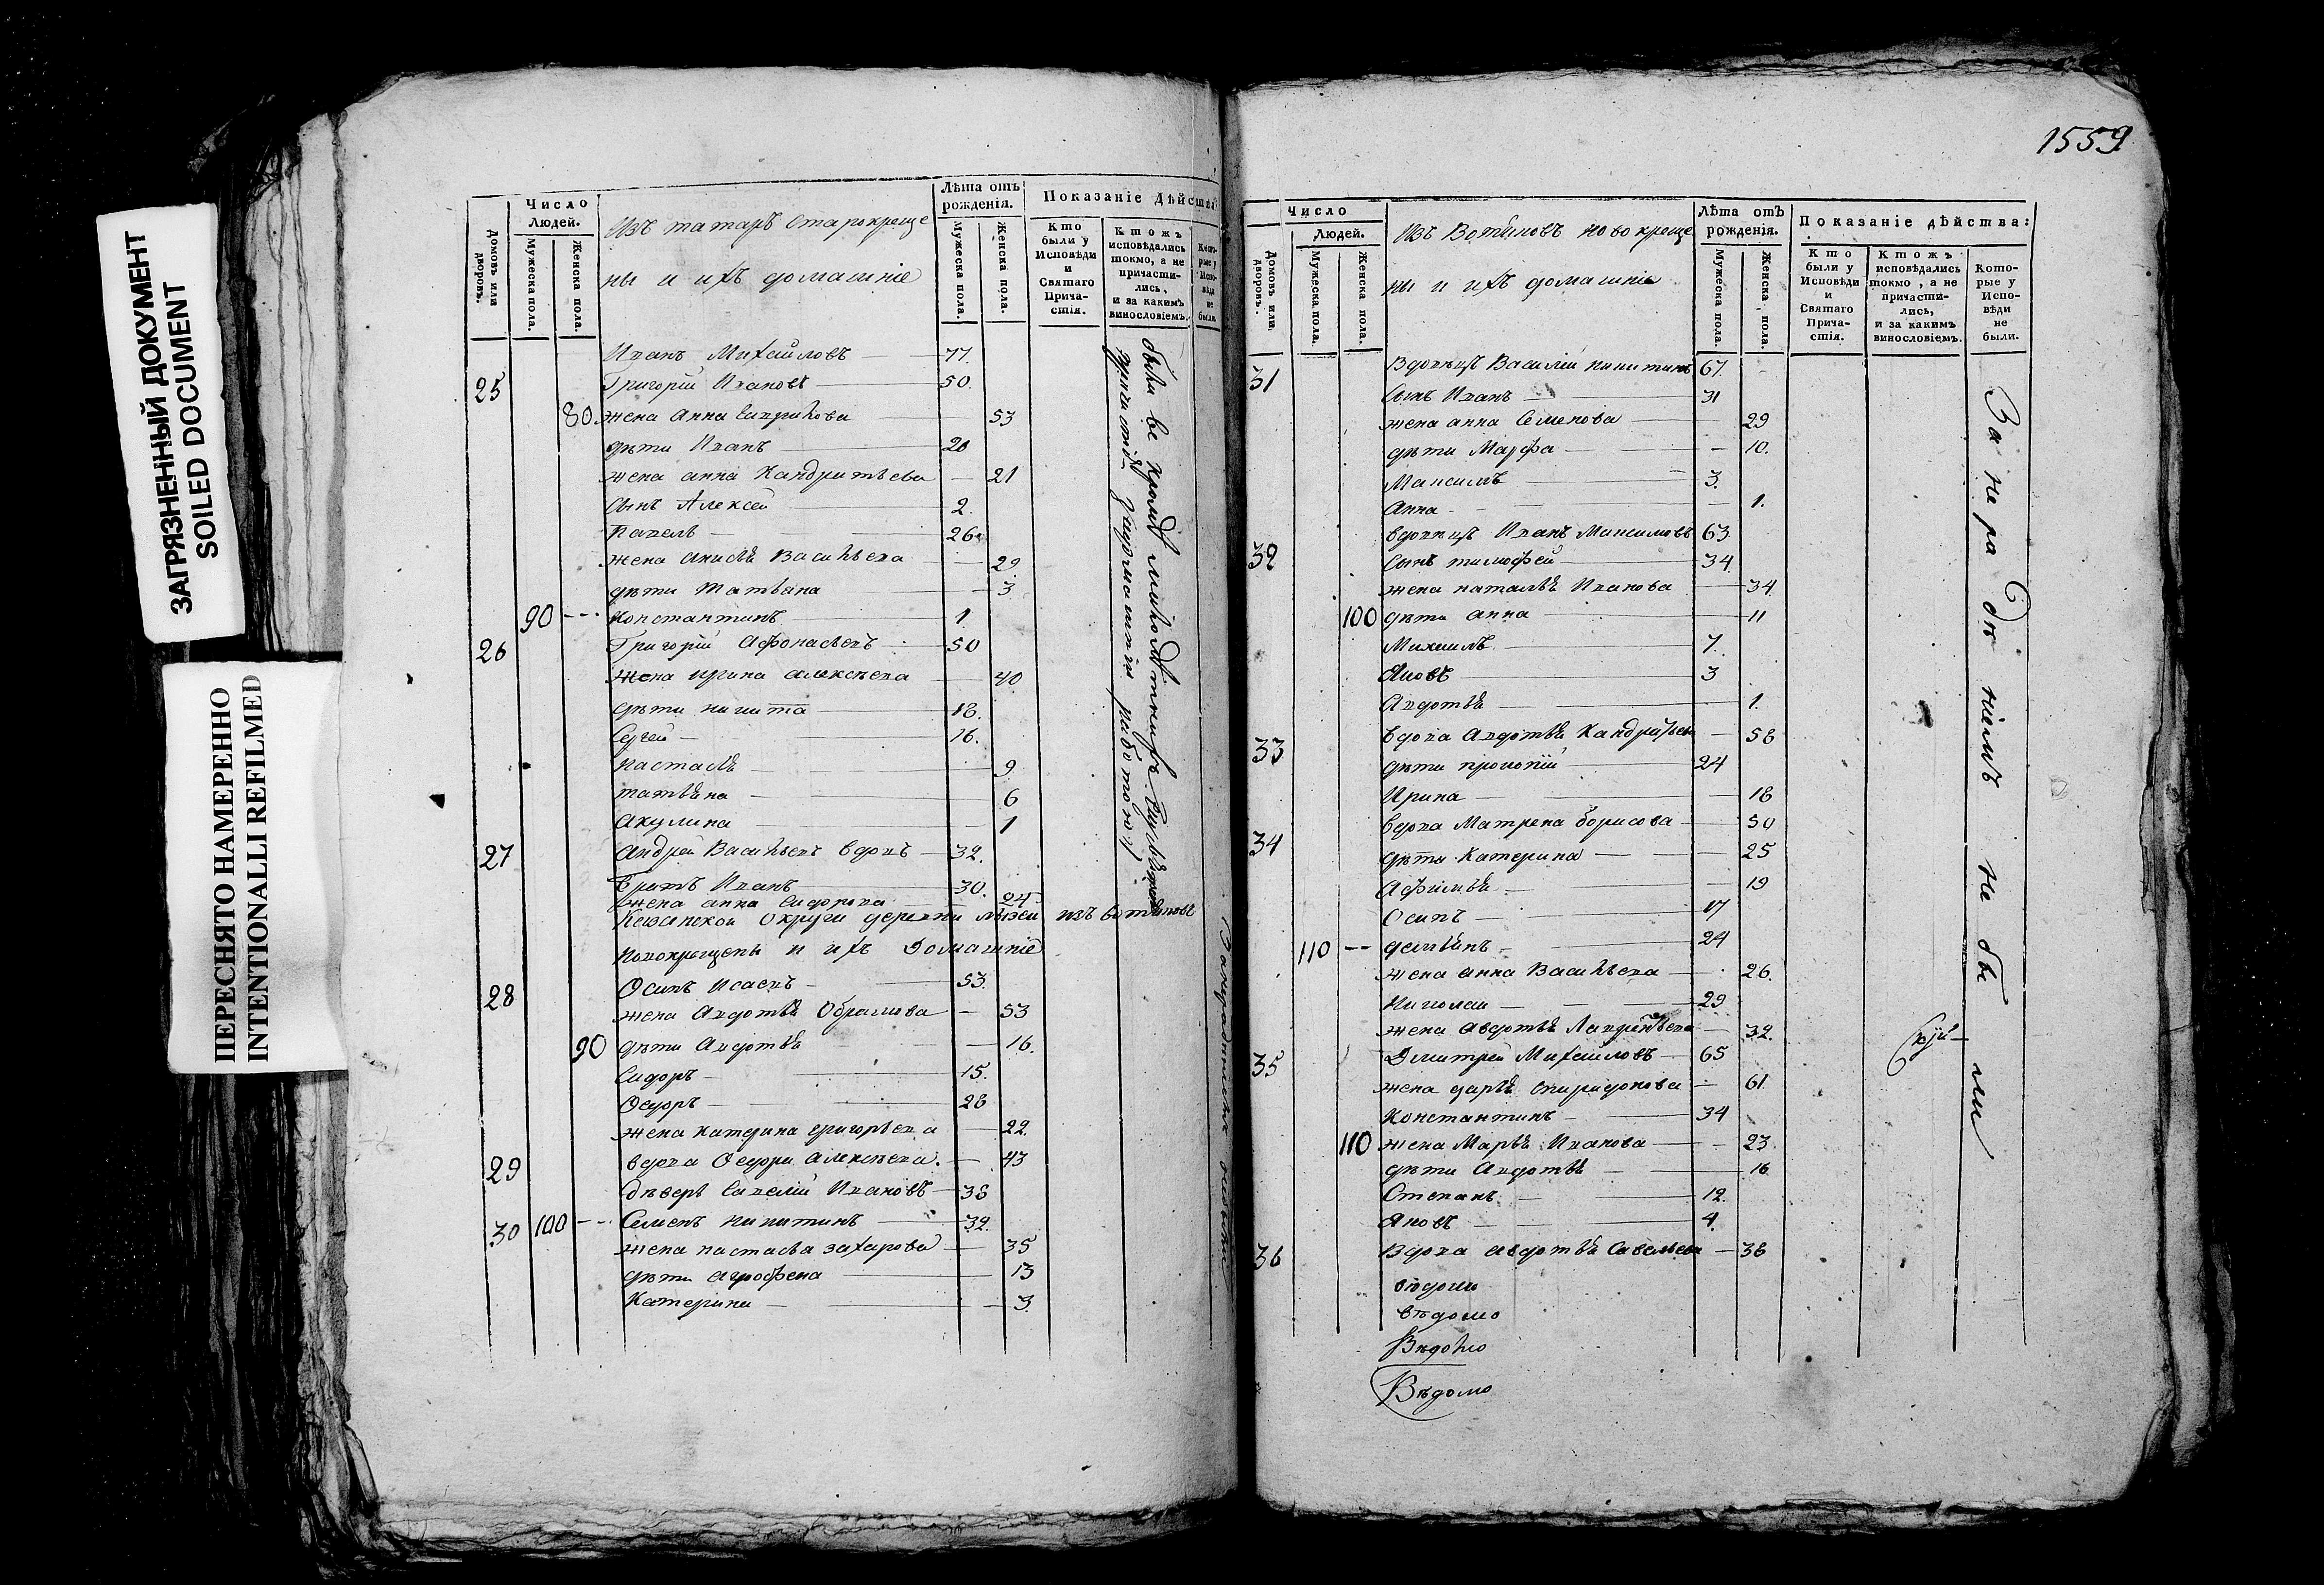 ЗАГРЯЗНЕННЫЙ ДОКУМЕНТ
SOILED DOCUMENT
ПЕРЕСНЯТО НАМЕРЕННО
INTENTIONALLI REFILMED
Домовъ или дворовъ.
Число Людей.
Мужеска пола.
Женска пола.
Изъ татаръ старокреще
ны и ихъ домашніе
Лѣта отъ рожденія.
Мужеска пола.
Женска пола.
Показаніе Дѣйст
Кто были у Исповѣди и Святаго Причастія.
Ктожъ исповѣдались токмо, а не причастились, и за какимъ винословіемъ.
Которые у Исповѣди не были.
Иванъ Михайловъ 77.
25 Григорій Ивановъ 50
80 жена Анна 53
дѣти Иванъ 20
жена анна Кандратьева 21
сынъ Алексей 2.
Павелъ 26
жена Анисья Васильева 29
дѣти татьяна 3
90 Константинъ 1
26 Григорій Афонасьевъ 50
жена ирина алексѣева 40
дѣти никита 18.
Сергей 16.
настасья 9
татьяна 6
акулина 1
27 андрей Васильевъ вдовъ 32.
братъ Иванъ 30.
жена анна Сидорова 24
Казанской округи деревни из вотяковъ
новокрещены и ихъ домашніе
28 Осипъ Исаевъ 53.
жена Авдотья Обрамова 53
90 дѣти Авдотья 16.
Сидоръ 15.
Ѳедоръ 28
жена катерина григорьева 22.
29 вдова Ѳедора алексѣева. 43
деверь Савелій Ивановъ 38
30 100 Семенъ никитинъ 32.
жена настасья захарова 35
дѣти агрофена 13
Катерина 3.
были кромѣ
работою
1559
Домовъ или дворовъ.
Число Людей.
Мужеска пола.
Женска пола.
Изъ Вотяковъ новокреще
ны и ихъ домашніе
Лѣта отъ рожденія.
Мужеска пола.
Женска пола.
Показаніе дѣйства:
Кто были у Исповѣди и Святаго Причастія.
Ктожъ исповѣдались токмо, а не причастились, и за какимъ винословіемъ.
Которые у Исповѣди не были.
31 Вдовецъ Василій никитинъ 67.
сынъ Иванъ 31
жена анна Семенова 29
дѣти Марфа 10.
Максимъ 3.
Анна 1.
32 вдовецъ Иванъ Максимовъ 63
сынъ тимофей 34
жена наталья Иванова 34
100 дѣти анна 11
Михаилъ 7.
Яковъ 3
Авдотья 1.
33 вдова Авдотья Кандратьева 58
дѣти прокопій 24
Ирина 18
34 вдова Матрена борисова 50
дѣти Катерина 25
Афимья 19
Осипъ 17
110 демьянъ 24
жена анна Васильева 26.
Николай 29
жена авдотья 32.
35 Дмитрей Михайловъ 65
жена дарья спиридонова 61.
Константинъ 34
110 жена Марья Иванова 23
дѣти Авдотья 16
Степанъ 12.
Яковъ 4.
36 Вдова авдотья Савельева 38
За нерадѣніемъ не были
вѣдомо
вѣдомо
Вѣдомо
Вѣдомо